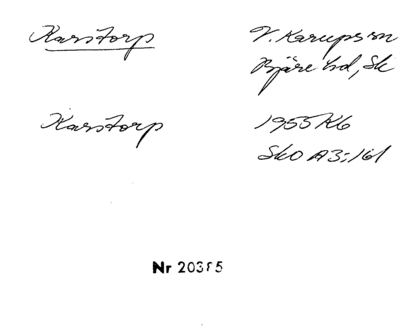 Karstorp
V. Karups sn
Bjäre hd, Sk
Karstorp
1955 K6
SkO A3:161
Nr 20385